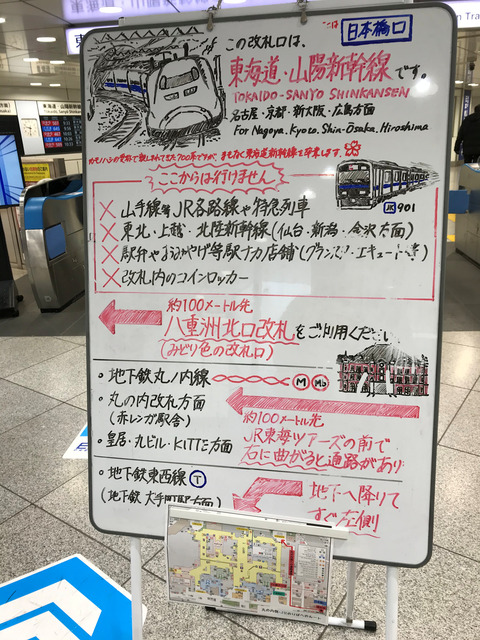 ここは
日本橋口
この改札口は、
東海道・山陽新幹線です。
TOKAIDO-SANYO SHINKANSEN
名古屋・京都・新大阪・広島方面
For Nagoya, Kyoto, Shin-Osaka, Hiroshima
ここからは行けません
JK 901
× 山手線等JR各路線や特急列車
× 東北・上越・北陸新幹線(仙台・新潟・金沢方面)
× 駅弁やおみやげ等駅ナカ店舗(グランスタ・エキュート等)
× 改札内のコインロッカー
約100メートル先
八重洲北口改札をご利用ください
(みどり色の改札口)
・地下鉄丸ノ内線 M Mb
・丸の内改札方面
(赤レンガ駅舎)
・皇居・丸ビル・KITTE方面
約100メートル先
JR東海ツアーズの前で
右に曲がると通路があり
・地下鉄東西線 T
(地下鉄 大手町駅方面)
地下へ降りて
すぐ左側